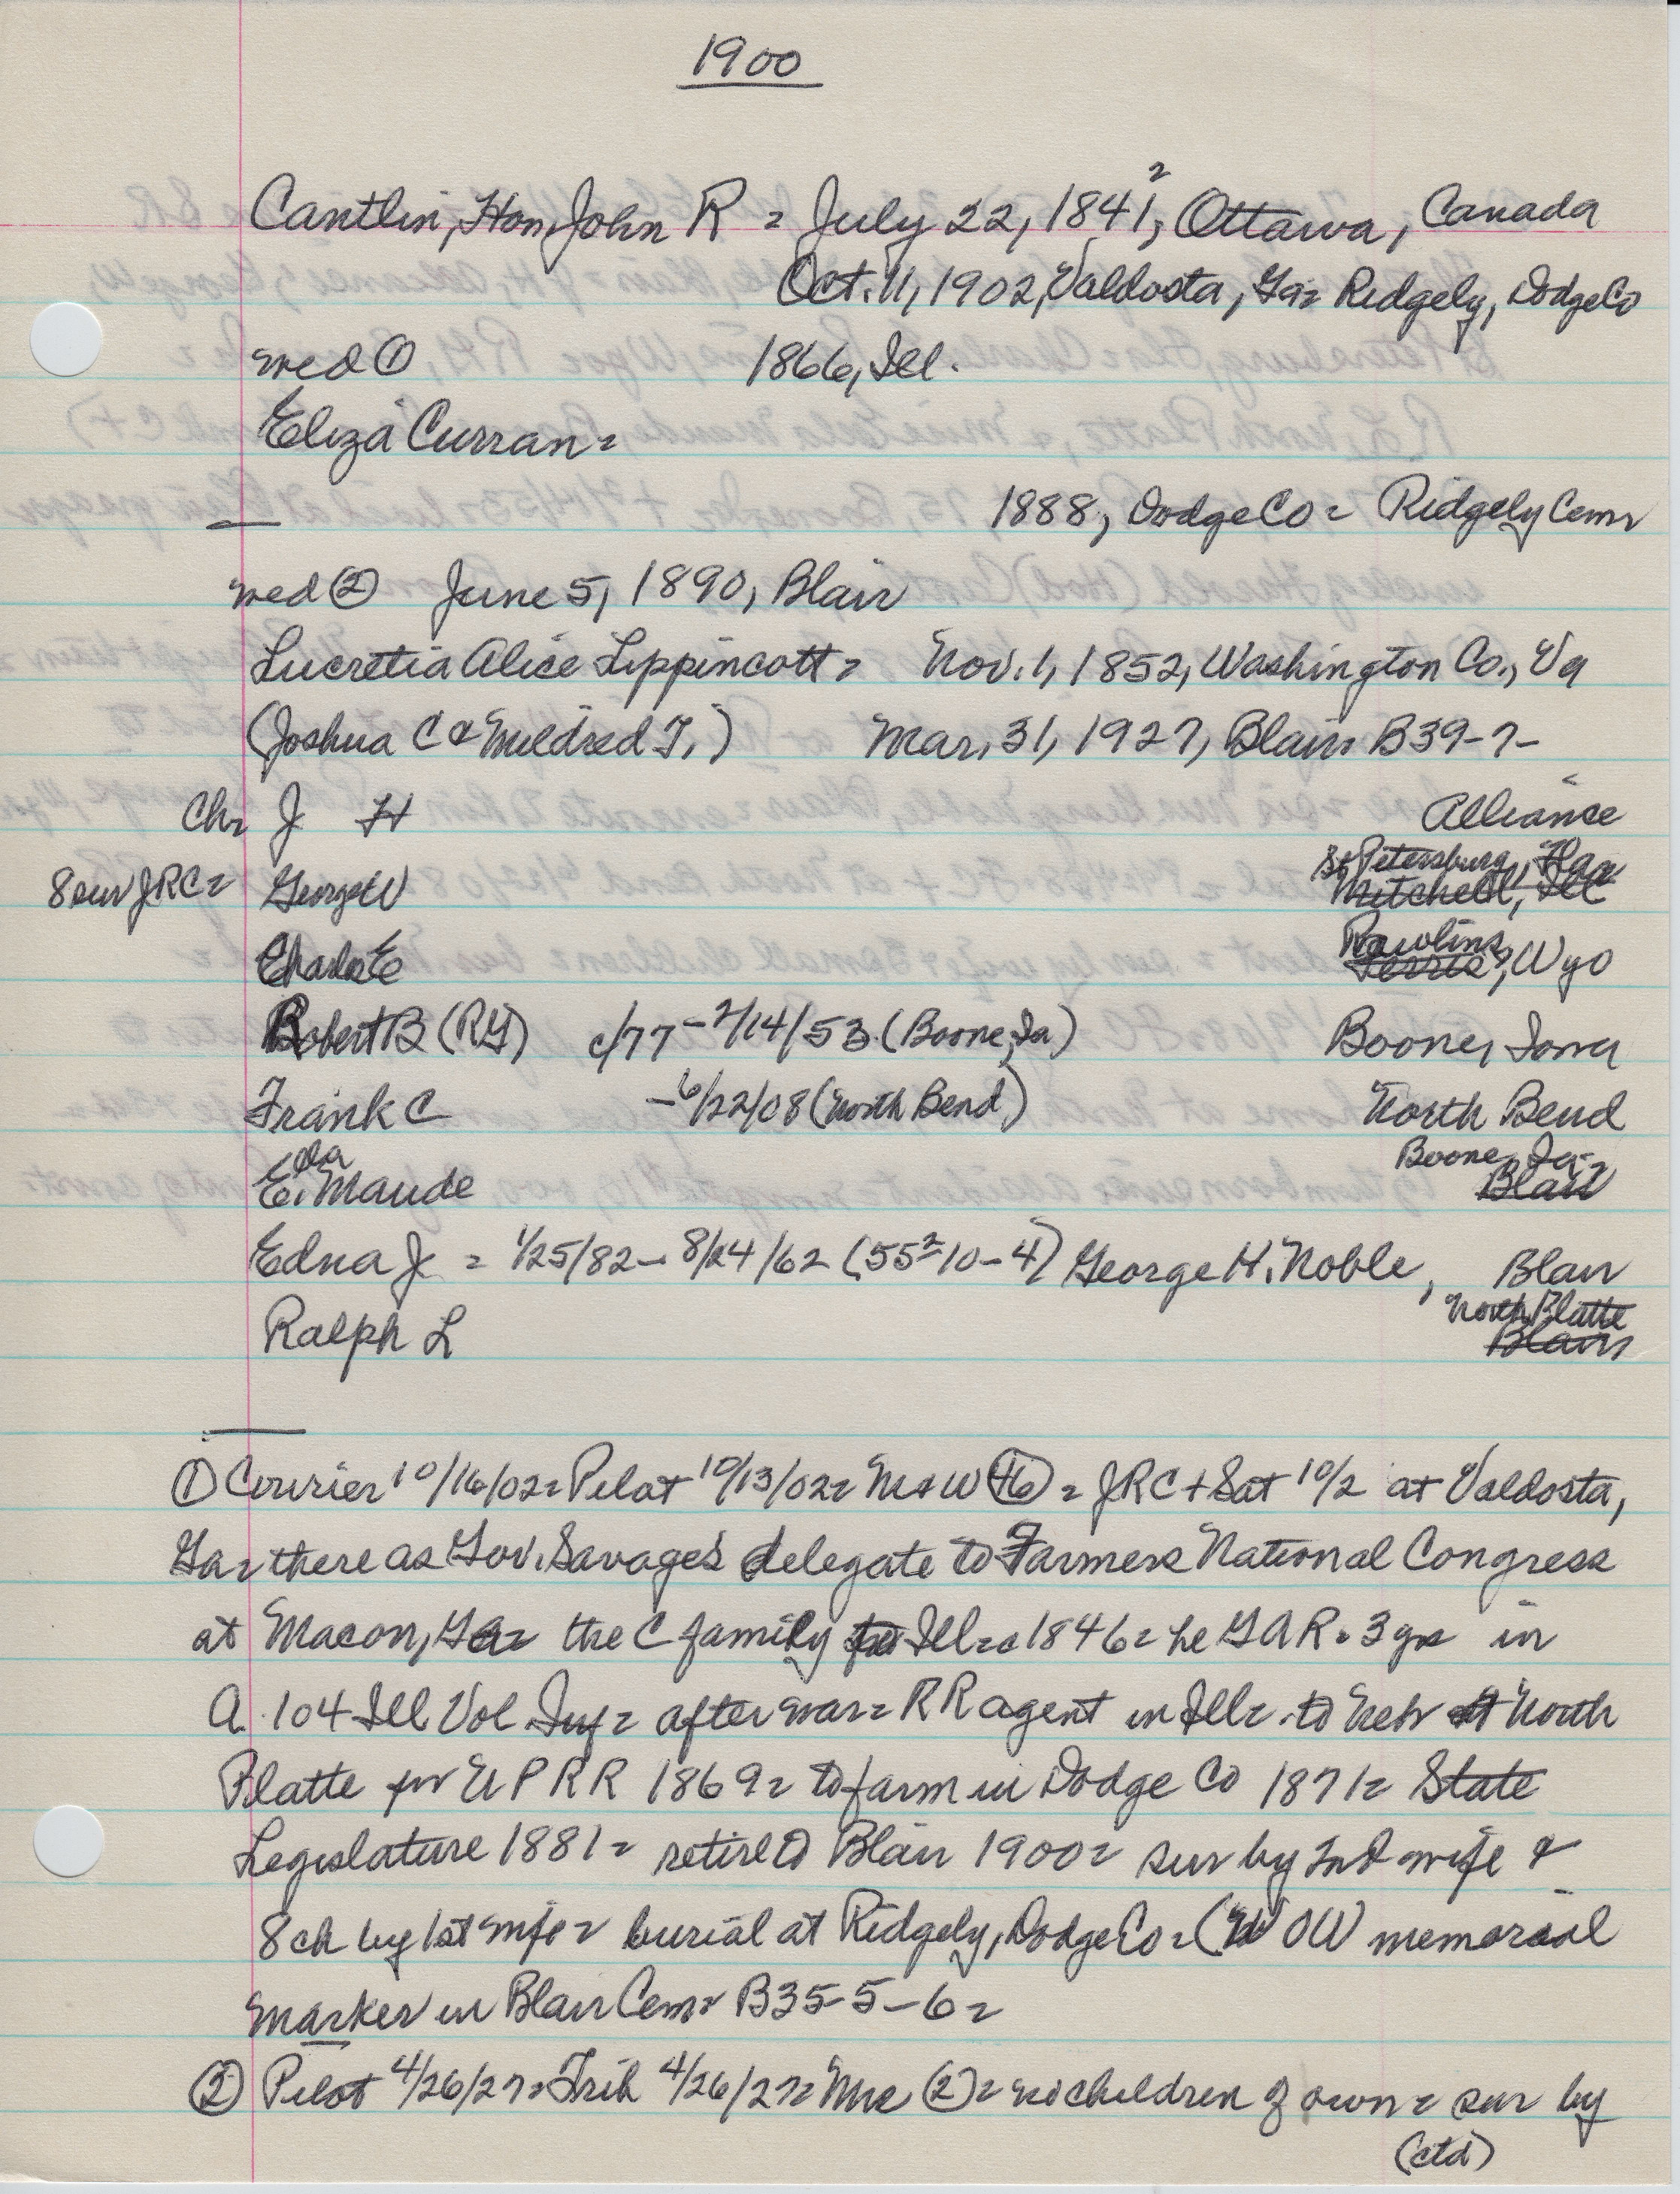 1900
2
Cantlin, Hon John R = July 22, 1841, Ottawa, Canada
Oct. 11, 1902, Valdosta, Ga = Ridgely, Dodge Co
med ① 1866, Ill.
Eliza Curran =
1888, Dodge Co = Ridgely Cem =
med ② June 5, 1890, Blair
Lucretia Alice Lippincott = Nov. 1, 1852, Washington Co., Va
(Joshua C & Mildred T.) Mar. 31, 1927, Blair = B39-7-
Ch = J H Alliance
St Petersburg, Fla
8 sur JRC = George W Mitchell, Ill
Rawlins,
Charles E Ferris, Wyo
Robert B (RG) c/77 - 2/14/53 (Boone, Ia) Boone, Iowa
Frank C - 6/22/08 (North Bend) North Bend
Ella Boone, Ia -
E. Maude Blair
Edna J = 1/25/82 - 8/24/62 (55=10-4) George H. Noble, Blair
North Platte
Ralph L Blair
① Courier 10/16/02 = Pilot 10/13/02 = M & W (46) = JRC + Sat 10/2 at Valdosta,
Ga = there as Gov. Savage's delegate to Farmers National Congress
at Macon, Ga = the C family to Ill = c 1846 = he GAR = 3 yrs in
A 104 Ill Vol Inf = after war = RR agent in Ill = to Neb at North
Platte for U P R R 1869 = to farm in Dodge Co 1871 = State
Legislature 1881 = retired Blair 1900 = sur by 2nd wife &
8 ch by 1st wife = burial at Ridgely, Dodge Co = (W O W memorial
marker in Blair Cem = B35-5-6 =
② Pilot 4/26/27 = Trib 4/26/27 = Mrs (2) = no children of own = sur by
(ctd)